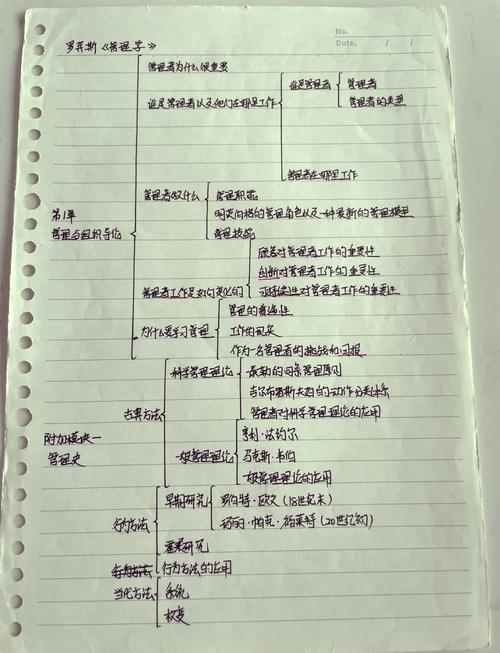 罗宾斯《管理学》
No.
Date. / /
管理者为什么很重要
谁是管理者以及他们在哪里工作
谁是管理者
管理者
管理者的类型
管理者在哪里工作
第1章
管理与组织导论
管理者做什么
管理职能
明茨伯格的管理角色以及一种最新的管理模型
管理技能
管理者工作是如何变化的
顾客对管理者工作的重要性
创新对管理者工作的重要性
可持续性对管理者工作的重要性
为什么要学习管理
管理的普遍性
工作的现实
作为一名管理者的挑战和回报
附加模块一
管理史
古典方法
科学管理理论
泰勒的四条管理原则
吉尔布雷斯夫妇的动作分类体系
管理者对科学管理理论的应用
一般管理理论
亨利·法约尔
马克斯·韦伯
一般管理理论的应用
行为方法
早期研究
罗伯特·欧文(18世纪末)
玛丽·帕克·福莱特(20世纪初)
霍桑研究
行为方法的应用
当代方法
系统
权变